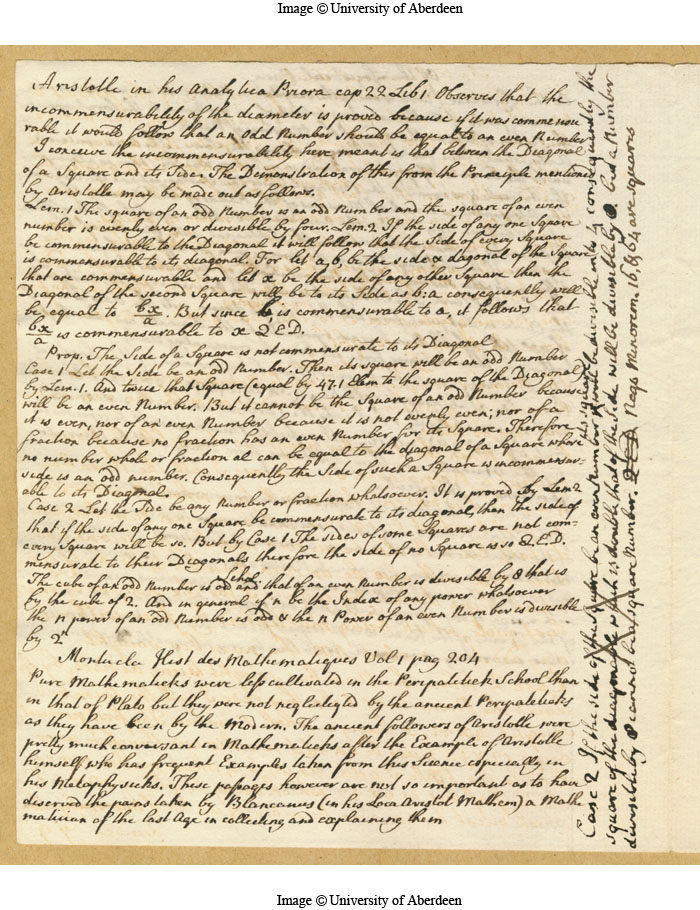 Image © University of Aberdeen
Aristotle in his Analytica Priora cap 22 Lib 1 Observes that the
incommensurability of the diameter is proved because if it was commensu
rable it would follow that an Odd Number should be equal to an even Number
I conceive the incommensurability here meant is that between the Diagonal
of a Square and its Side. The Demonstration of this from the Principle mentioned
by Aristotle may be made out as follows.
Lem. 1 The square of an odd Number is an odd Number and the square of an even
number is evenly even or divisible by four. Lem. 2 If the side of any one Square
be commensurable to the Diagonal it will follow that the Side of every Square
is commensurable to its diagonal. For let a, b, be the side & dagonal of the Square
that are commensurable and let x be the side of any other Square then the
Diagonal of the second Square will be to its Side as b:a consequently will
be equal to bx/a. But since b, is commensurable to a, it follows that
bx/a is commensurable to x Q E D.
Prop. The Side of a Square is not commensurate to its Diagonal
Case 1 Let the Side be an odd Number. Then its square will be an odd Number
by Lem. 1. And twice that Square (equal by 47.1 Elem to the square of the Diagonal)
will be an even Number. But it cannot be the Square of an odd Number because
it is even, nor of an even Number because it is not evenly even; nor of a
fraction because no fraction has an even Number for its Square. Therefore
no number whole or fraction al can be equal to the diagonal of a Square whose
side is an odd number. Consequently the Side of such a Square is incommensur-
able to its Diagonal.
Case 2 Let the Side be any Number or fraction whatsoever. It is proved by Lem 2
that if the side of any one Square be commensurate to its diagonal, then the side of
every Square will be so. But by Case 1 The sides of some Squares are not com-
mensurate to their Diagonals therefore the side of no Square is so Q E D.
Schol
The cube of an odd Number is odd and that of an even Number is divisible by 8 that is
by the cube of 2. And in general if n be the Index of any power whatsoever
the n power of an odd Number is odd & the n Power of an even Number is divisible
by 2ⁿ
Montucla Hist des Mathematiques Vol 1 pag 204
Pure Mathematicks were less cultivated in the Peripatetick School than
in that of Plato but they were not neglected by the ancient Peripateticks
as they have been by the Modern. The ancient followers of Aristotle were
pretty much conversant in Mathematicks after the Example of Aristotle
himself who has frequent Examples taken from this Science especially in
his Metaphysicks. These passages however are not so important as to have
deserved the pains taken by Blancanus (in his Loca Aristot Mathem) a Mathe
matician of the last Age in collecting and explaining them
Case 2 If the side of the Square be an even Number it will be divisible into consequently the
square of the diagonal which is double that of the side will be divisible by 8. but a Number
divisible by 8 cannot be a square Number. Q E D Negs Minorem. 16, & 64 are squares
Image © University of Aberdeen